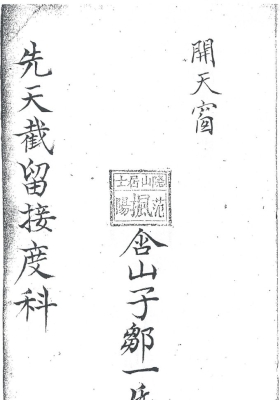 開天窗
隱山居士
含山子鄒一
先天截留接度科